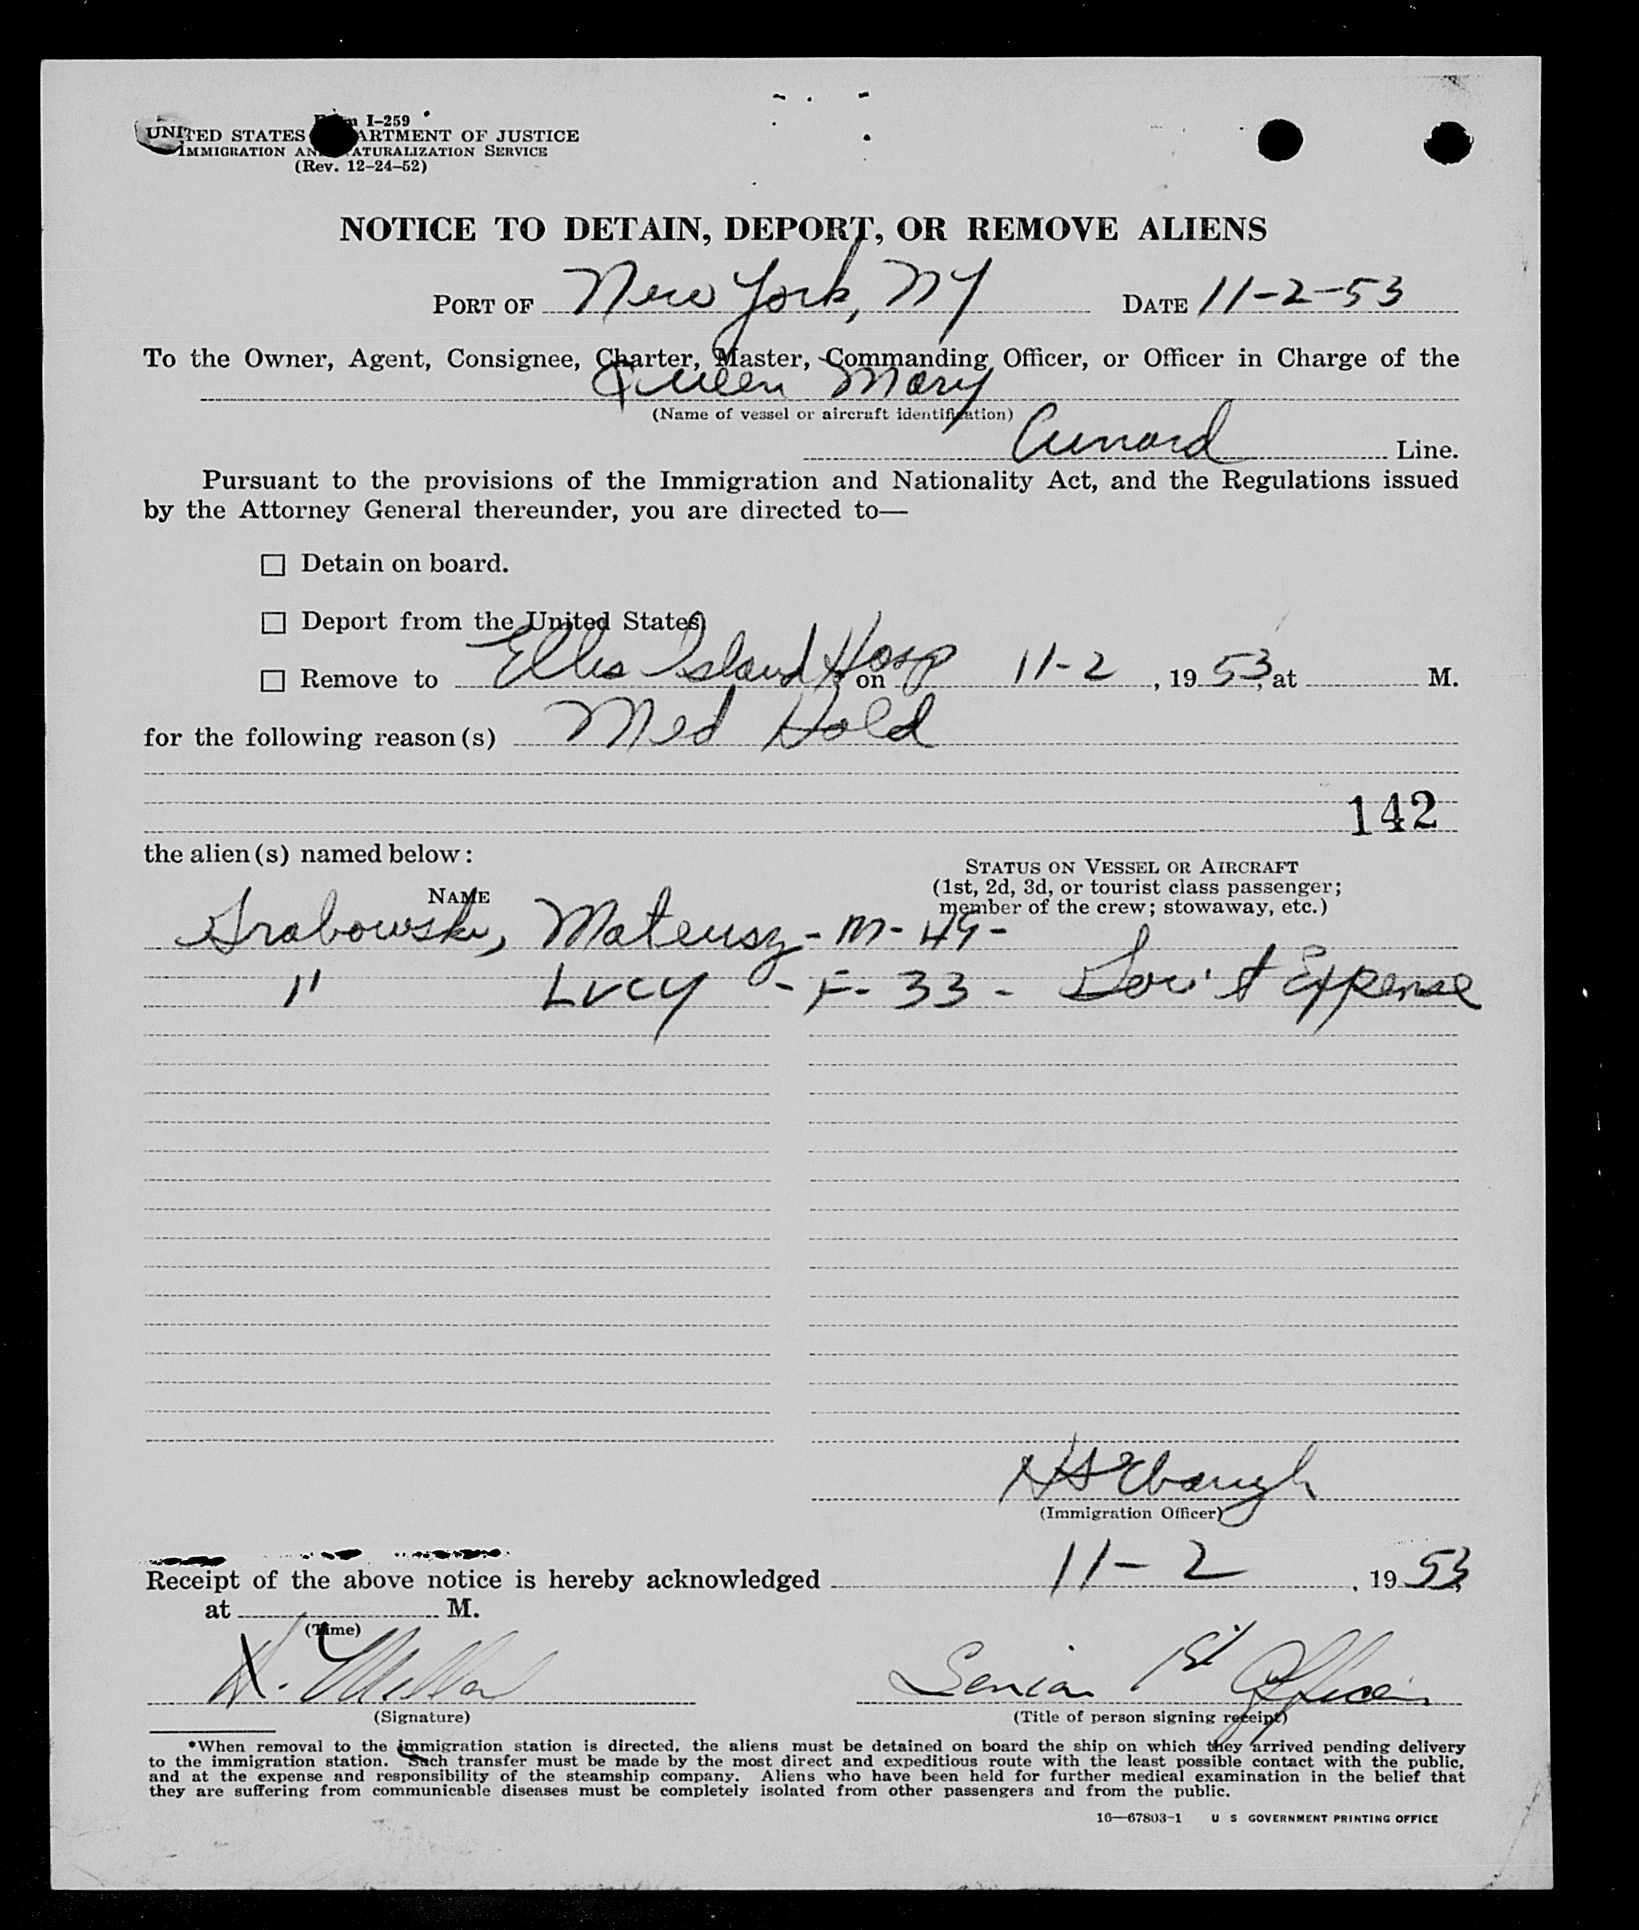 Form I-259
UNITED STATES DEPARTMENT OF JUSTICE
IMMIGRATION AND NATURALIZATION SERVICE
(Rev. 12-24-52)
NOTICE TO DETAIN, DEPORT, OR REMOVE ALIENS
PORT OF New York, NY DATE 11-2-53
To the Owner, Agent, Consignee, Charter, Master, Commanding Officer, or Officer in Charge of the
Queen Mary
(Name of vessel or aircraft identification)
Cunard Line.
Pursuant to the provisions of the Immigration and Nationality Act, and the Regulations issued
by the Attorney General thereunder, you are directed to—
☐ Detain on board.
☐ Deport from the United States.
☐ Remove to Ellis Island Hosp on 11-2, 1953, at M.
for the following reason(s) Med Hold
142
the alien(s) named below:
STATUS ON VESSEL OR AIRCRAFT
NAME (1st, 2d, 3d, or tourist class passenger;
member of the crew; stowaway, etc.)
Grabowski, Mateusz - M - 49 -
" LUCY - F - 33 - Gov't Expense
H S Ebaugh
(Immigration Officer)
Receipt of the above notice is hereby acknowledged 11-2, 1953,
at M.
(Time)
Senior 1st Officer
(Signature) (Title of person signing receipt)
*When removal to the immigration station is directed, the aliens must be detained on board the ship on which they arrived pending delivery
to the immigration station. Such transfer must be made by the most direct and expeditious route with the least possible contact with the public,
and at the expense and responsibility of the steamship company. Aliens who have been held for further medical examination in the belief that
they are suffering from communicable diseases must be completely isolated from other passengers and from the public.
16—67803-1 U S GOVERNMENT PRINTING OFFICE